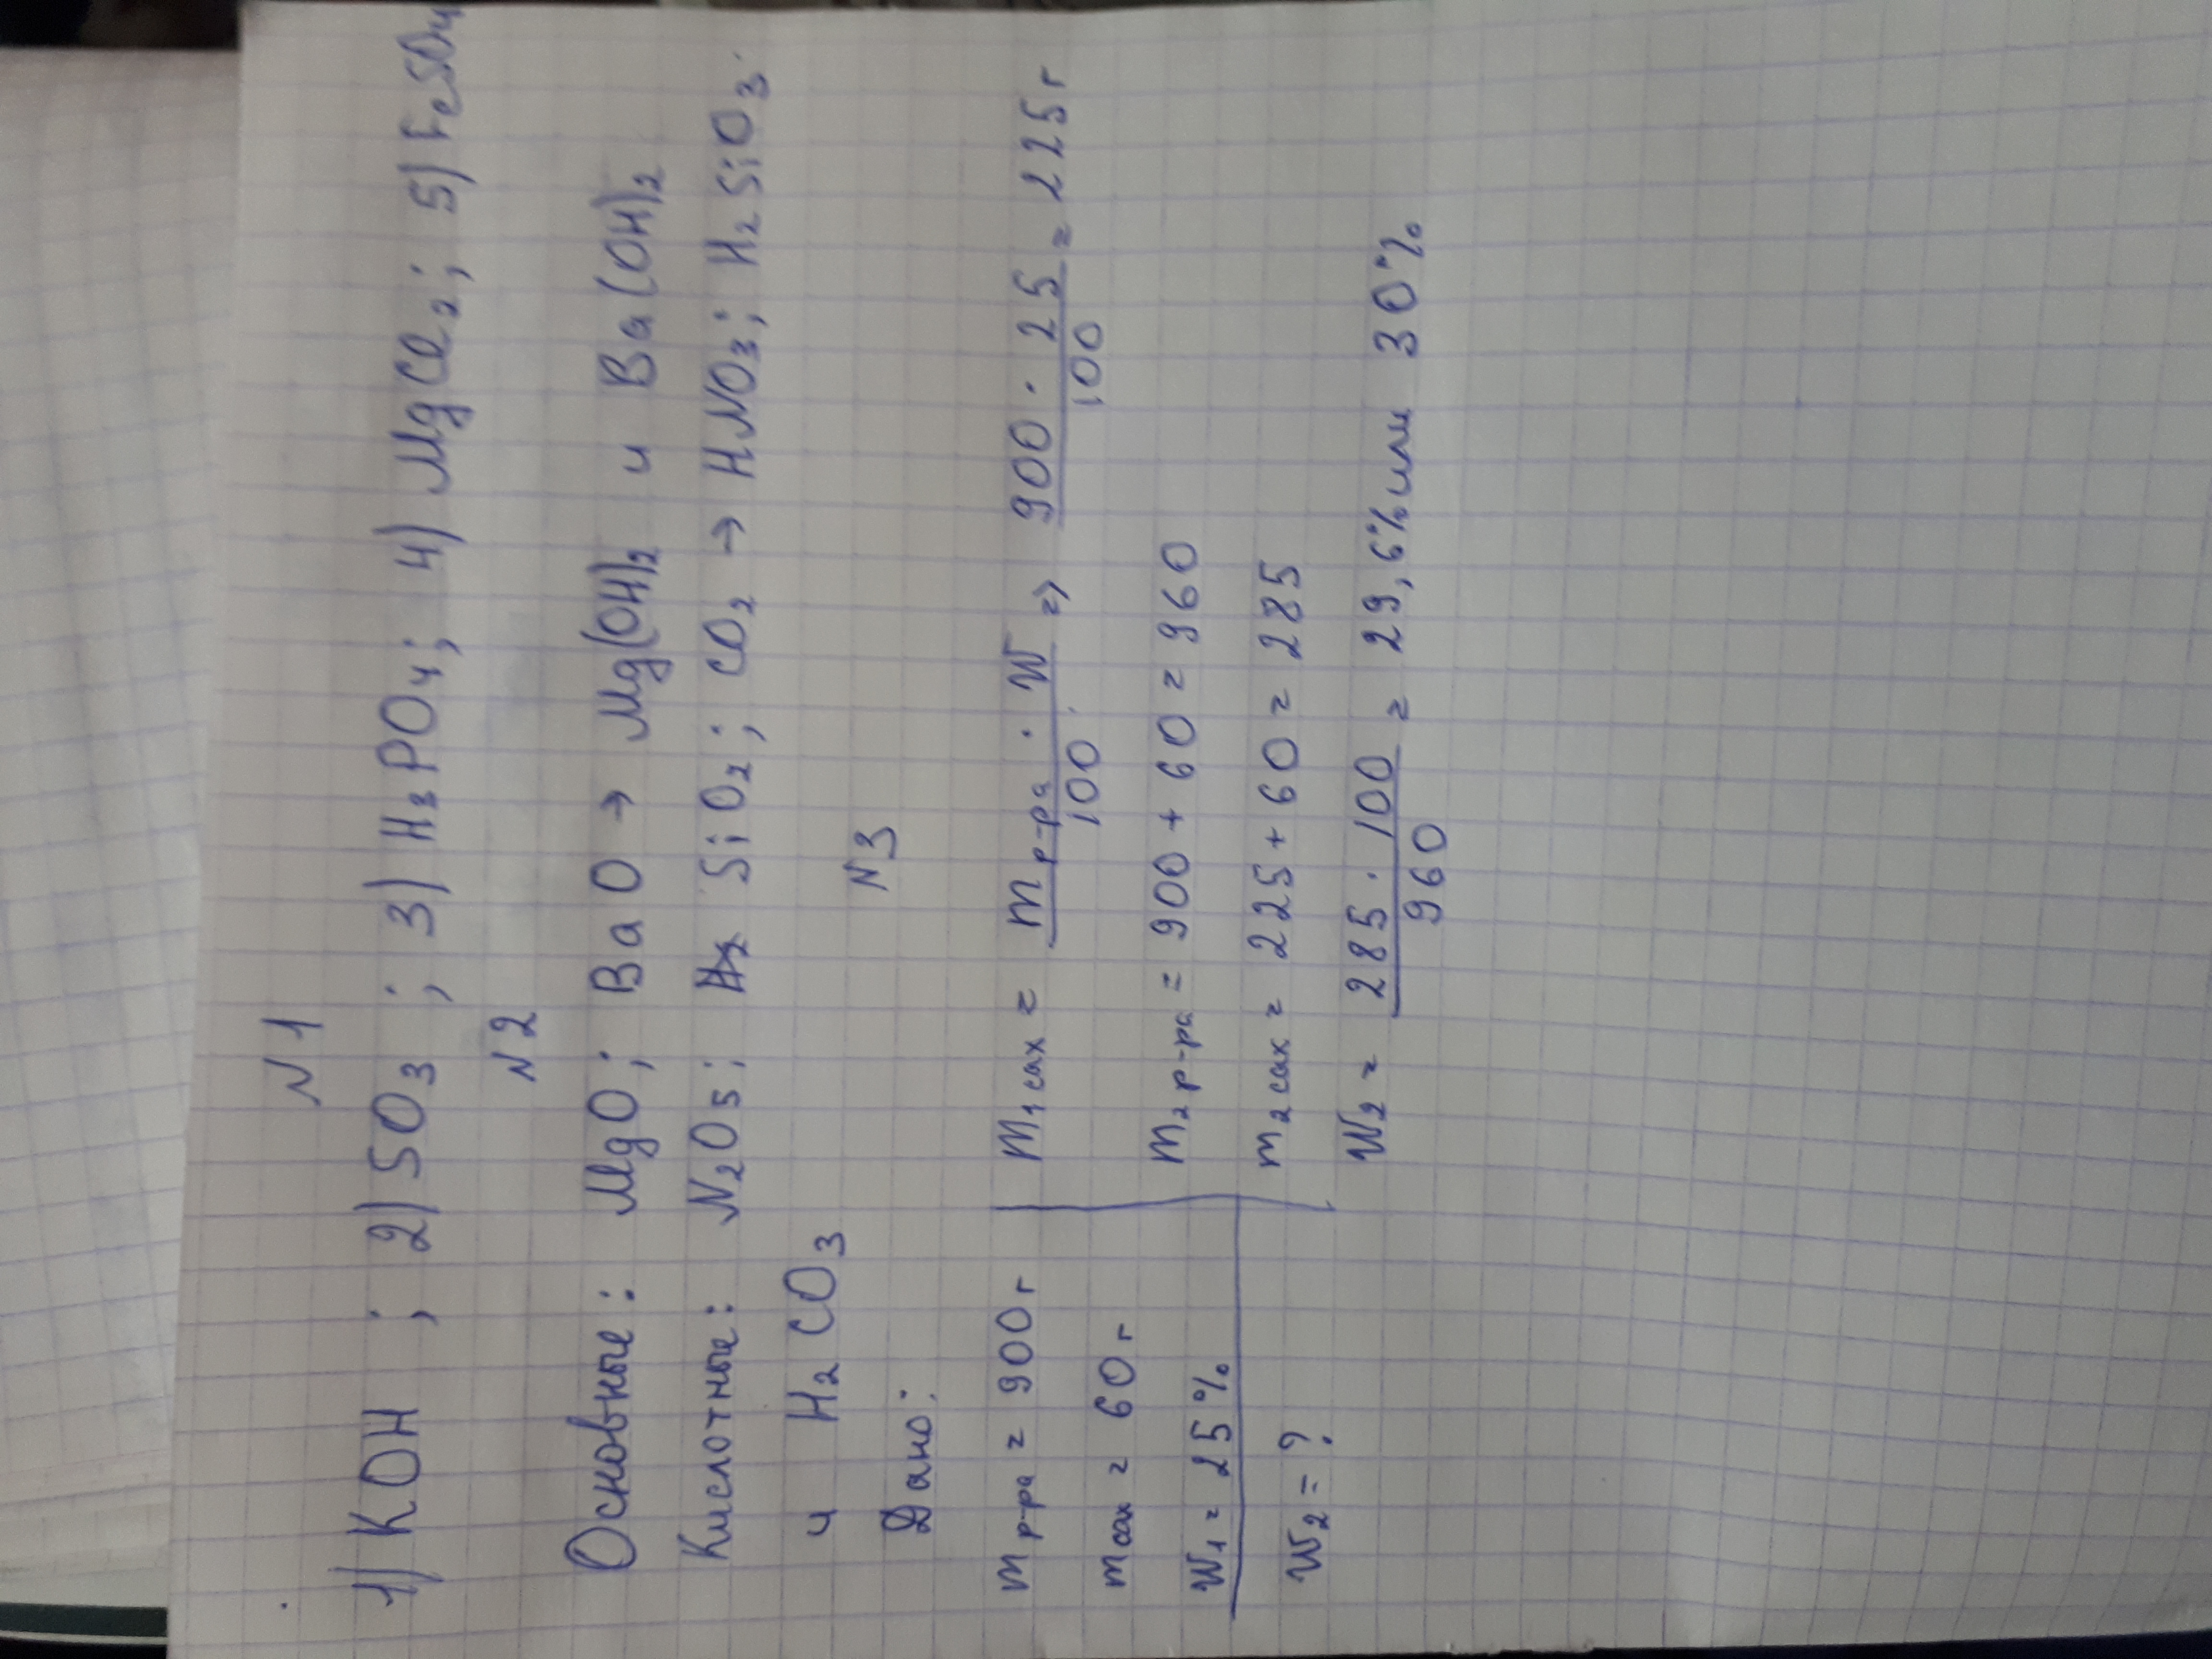 N1
1) KOH ; 2) SO₃ ; 3) H₃PO₄; 4) MgCl₂; 5) FeSO₄
N2
Основные: MgO; BaO → Mg(OH)₂ и Ba(OH)₂
Кислотные: N₂O₅; SiO₂; CO₂ → HNO₃; H₂SiO₃.
и H₂CO₃
N3
Дано:
m р-ра = 900 г
m сах = 60 г
W₁ = 25%
W₂ = ?
m₁ сах = m р-ра · W / 100 => 900 · 25 / 100 = 225 г
m₂ р-ра = 900 + 60 = 960
m₂ сах = 225 + 60 = 285
W₂ = 285 · 100 / 960 = 29,6% или 30%